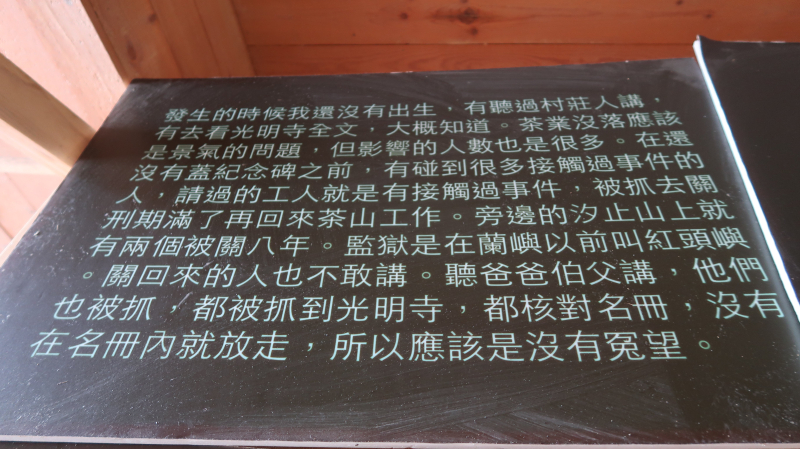 發生的時候我還沒有出生，有聽過村莊人講，
有去看光明寺全文，大概知道。茶業沒落應該
是景氣的問題，但影響的人數也是很多。在還
沒有蓋紀念碑之前，有碰到很多接觸過事件的
人，請過的工人就是有接觸過事件，被抓去關
刑期滿了再回來茶山工作。旁邊的汐止山上就
有兩個被關八年。監獄是在蘭嶼以前叫紅頭嶼
。關回來的人也不敢講。聽爸爸伯父講，他們
也被抓，都被抓到光明寺，都核對名冊，沒有
在名冊內就放走，所以應該是沒有冤望。